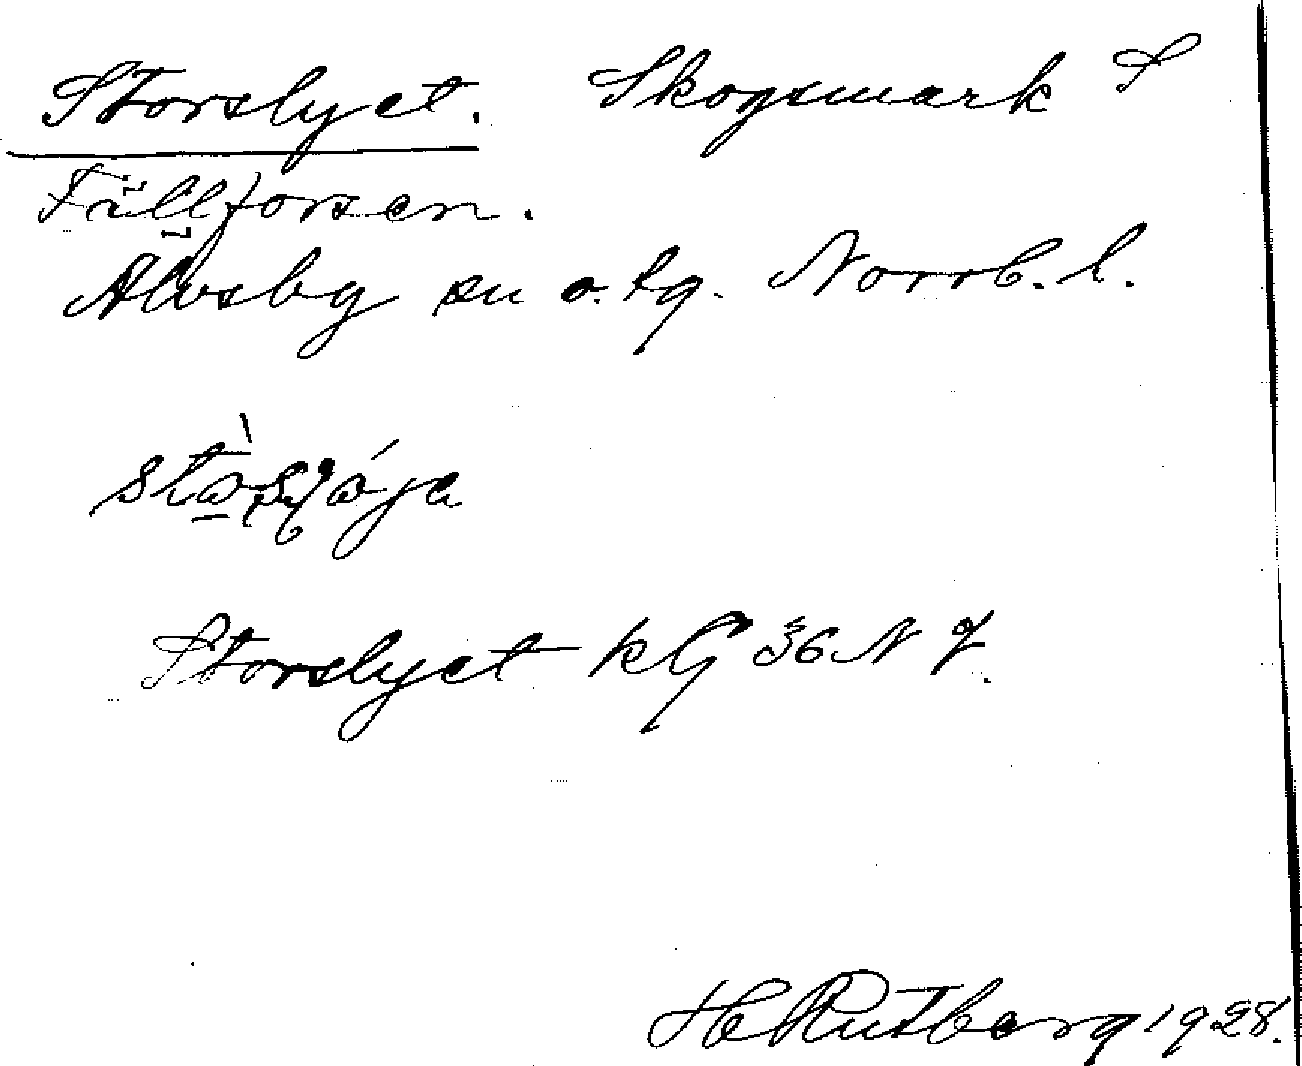 Storslyet. Skogsmark S
Fällforsen.
Älvsby sn o. tg. Norrb. l.
Storslyet kG 36 N
H Rutberg 1928.